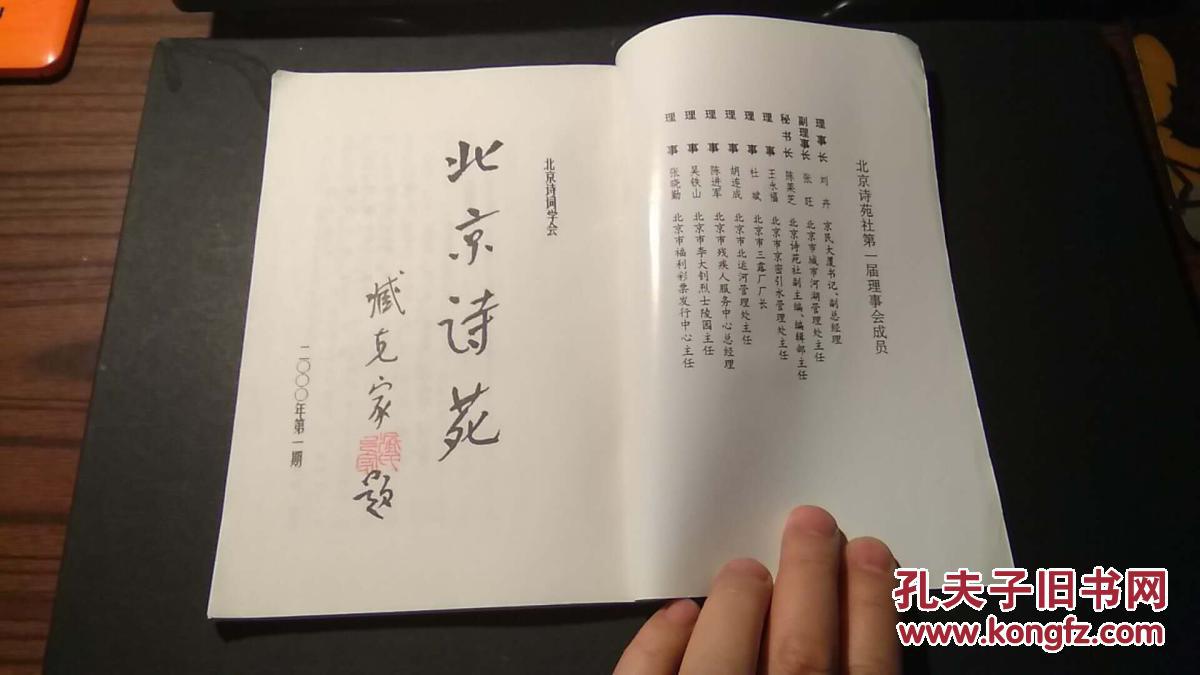 北京诗苑社第一届理事会成员
理事长 刘卉 京民大厦书记、副总经理
副理事长 张旺 北京市城市河湖管理处主任
秘书长 陈莱芝 北京诗苑社副主编、编辑部主任
理事 王永福 北京市京密引水管理处主任
理事 杜斌 北京市三露厂厂长
理事 胡连成 北京市北运河管理处主任
理事 陈进军 北京市残疾人服务中心总经理
理事 吴铁山 北京市李大钊烈士陵园主任
理事 张晓勤 北京市福利彩票发行中心主任
北京诗词学会
北京诗苑
臧克家题
二〇〇〇年第一期
孔夫子旧书网
www.kongfz.com